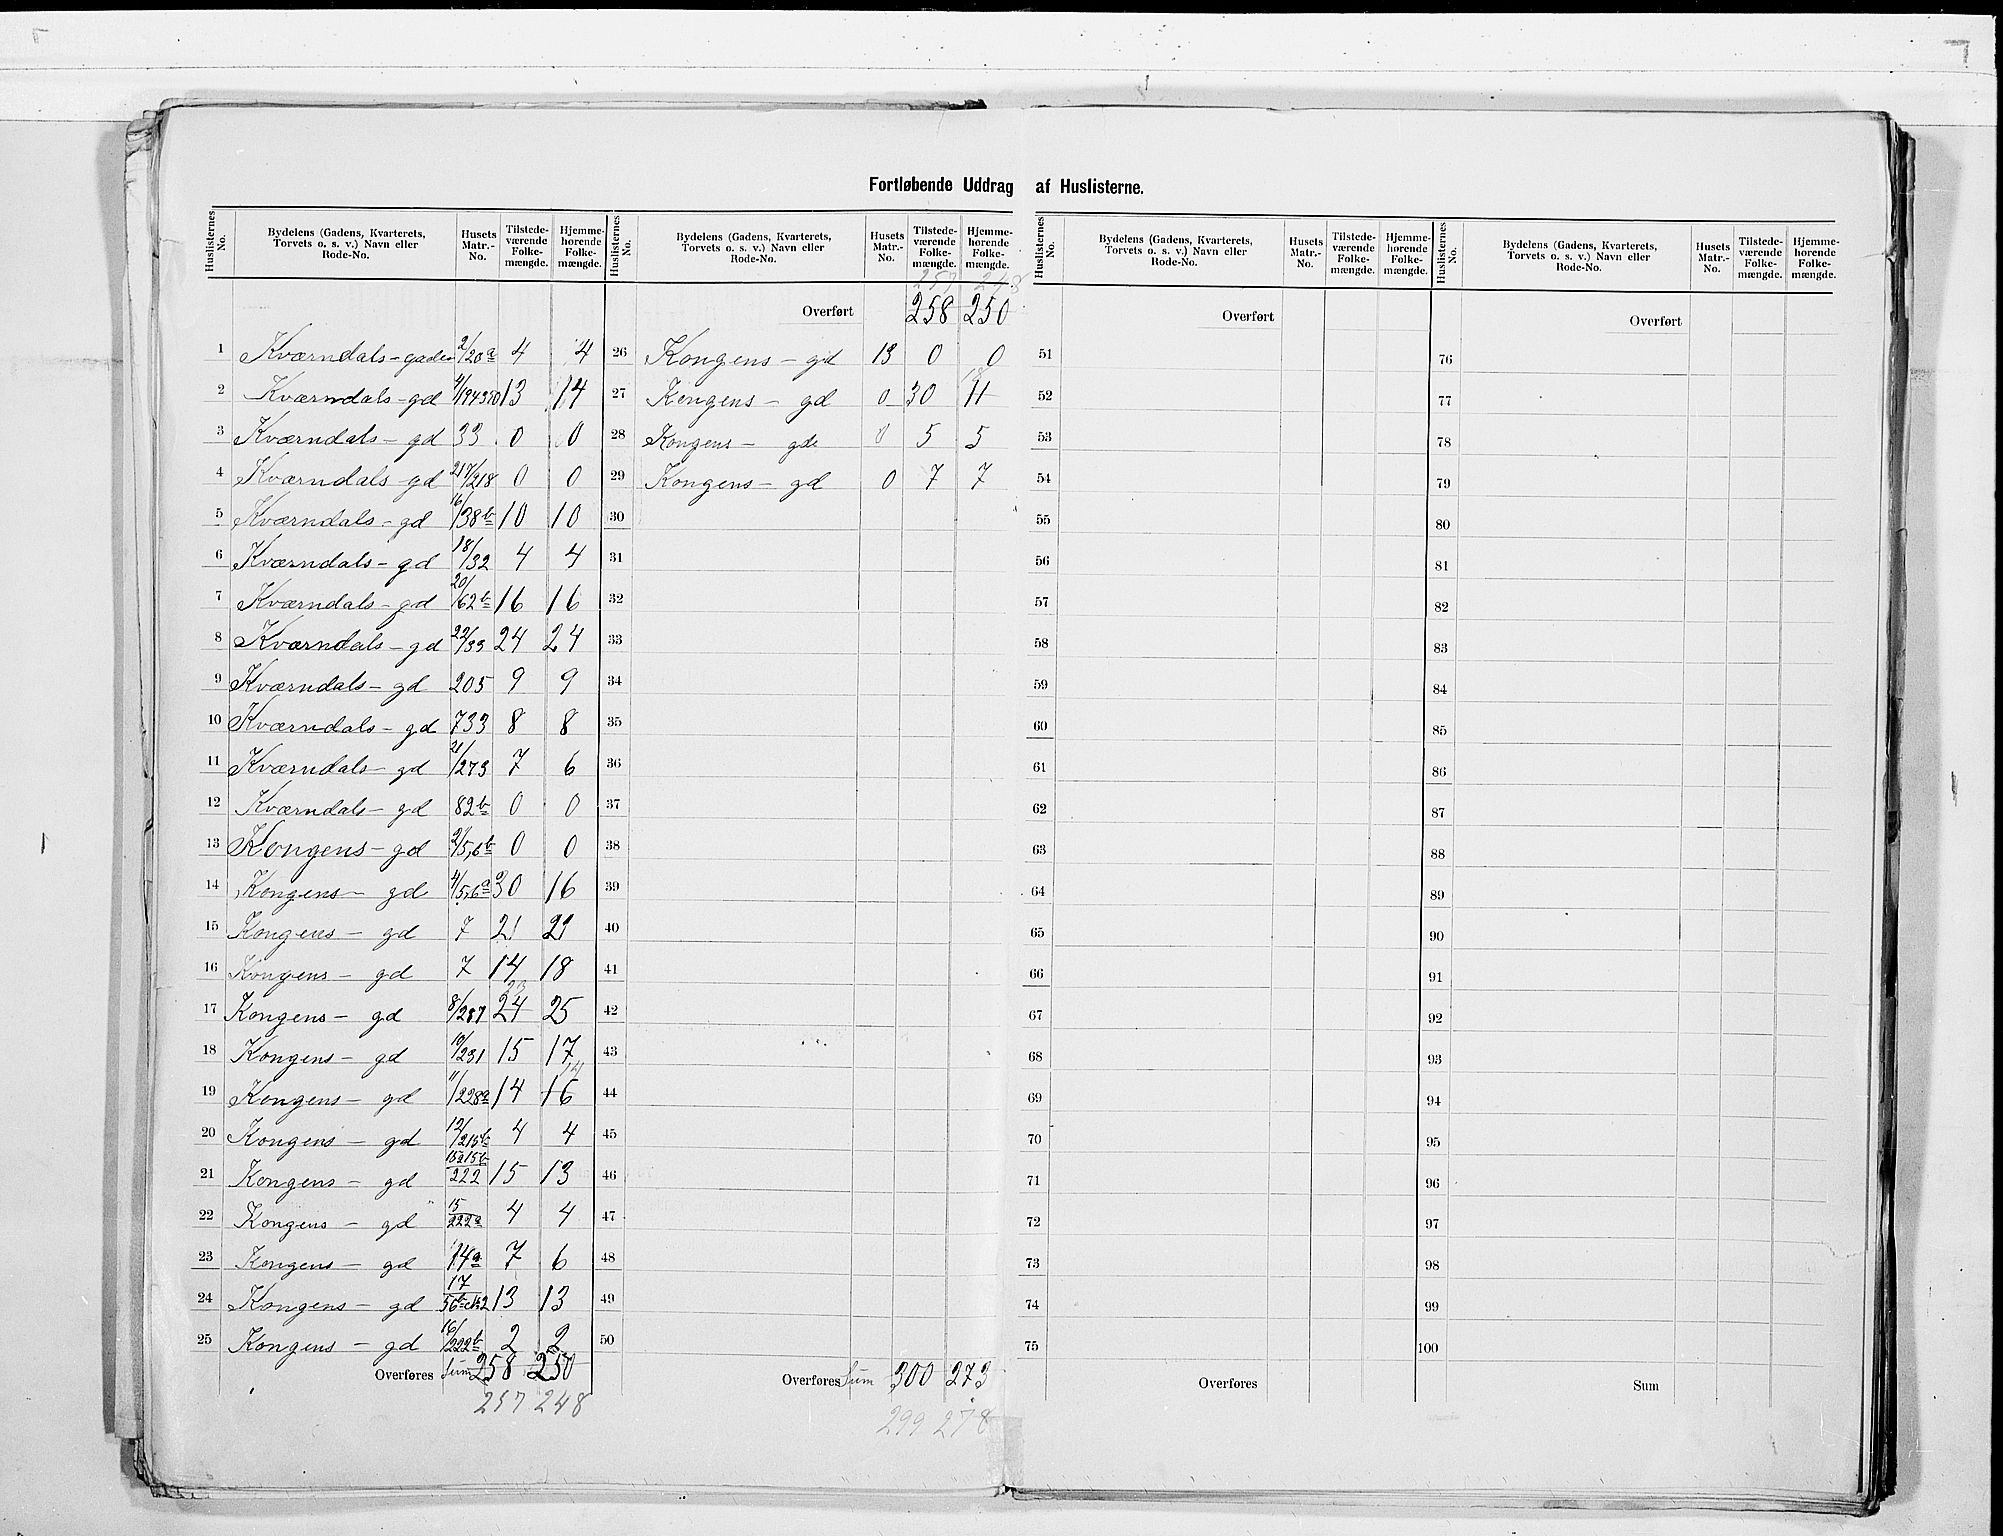 Fortløbende Uddrag af Huslisterne.
Huslisternes No. | Bydelens (Gadens, Kvarterets, Torvets o. s. v.) Navn eller Rode-No. | Husets Matr.-No. | Tilstede-værende Folke-mængde. | Hjemme-hørende Folke-mængde. | Huslisternes No. | Bydelens (Gadens, Kvarterets, Torvets o. s. v.) Navn eller Rode-No. | Husets Matr.-No. | Tilstede-værende Folke-mængde. | Hjemme-hørende Folke-mængde. | Huslisternes No. | Bydelens (Gadens, Kvarterets, Torvets o. s. v.) Navn eller Rode-No. | Husets Matr.-No. | Tilstede-værende Folke-mængde. | Hjemme-hørende Folke-mængde. | Huslisternes No. | Bydelens (Gadens, Kvarterets, Torvets o. s. v.) Navn eller Rode-No. | Husets Matr.-No. | Tilstede-værende Folke-mængde. | Hjemme-hørende Folke-mængde.
257 248
Overført 258 250 Overført Overført
1 Kværndals-gaden 2/20a 4 4 26 Kongens-gd 13 0 0 51 76
2 Kværndals-gd 13 14 27 Kongens-gd 0 30 11 52 77
3 Kværndals-gd 33 0 0 28 Kongens-gd 0 5 5 53 78
4 Kværndals-gd 217/218 0 0 29 Kongens-gd 0 7 7 54 79
5 Kværndals-gd 16/38b 10 10 30 55 80
6 Kværndals-gd 18/32 4 4 31 56 81
7 Kværndals-gd 20/62b 16 16 32 57 82
8 Kværndals-gd 22/33 24 24 33 58 83
9 Kværndals-gd 205 9 9 34 59 84
10 Kværndals-gd 733 8 8 35 60 85
11 Kværndals-gd 21/273 7 6 36 61 86
12 Kværndals-gd 82b 0 0 37 62 87
13 Kongens-gd 2/5,6b 0 0 38 63 88
14 Kongens-gd 4/5,6a 30 16 39 64 89
15 Kongens-gd 7 21 21 40 65 90
16 Kongens-gd 7 14 18 41 66 91
17 Kongens-gd 8/287 24 23 25 42 67 92
18 Kongens-gd 10/231 15 17 43 68 93
19 Kongens-gd 11/228a 14 16 14 44 69 94
20 Kongens-gd 12/215b 4 4 45 70 95
21 Kongens-gd 15a15b/222 15 13 46 71 96
22 Kongens-gd 15/222a 4 4 47 72 97
23 Kongens-gd 14a 7 6 48 73 98
24 Kongens-gd 13 13 49 74 99
25 Kongens-gd 16/222b 2 2 50 75 100
Overføres Sum 258 250 Overføres Sum 300 273 Overføres Sum
257 248 299 278